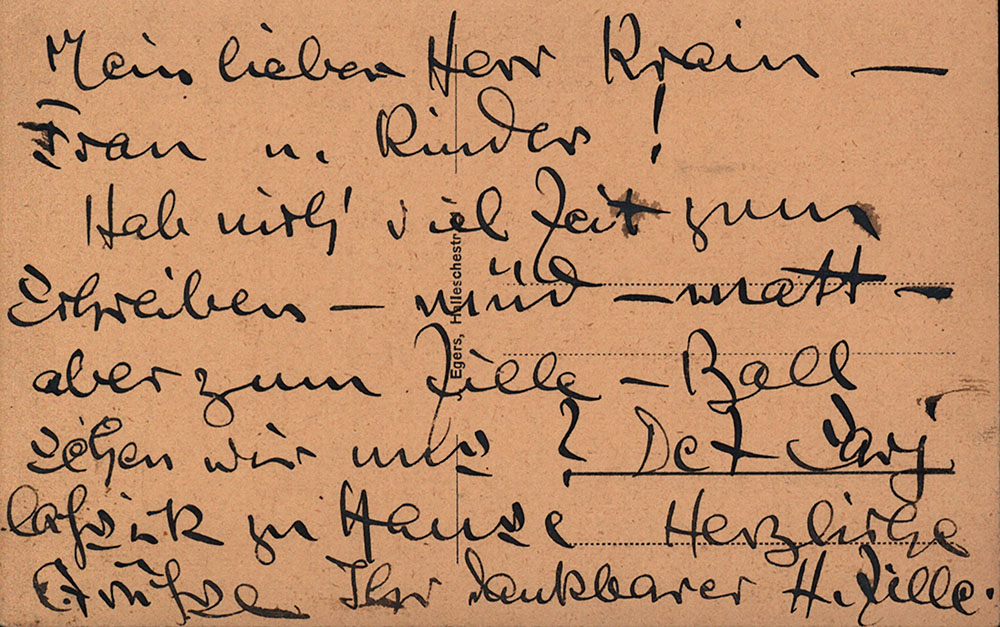 Mein lieber Herr Krain —
Frau u. Kinder!
Hab nich' viel Zeit zum
Schreiben — müd — matt —
aber zum Zille-Ball
sehen wir uns? Det Sarj
lass ick zu Hause Herzliche
Grüsse Ihr dankbarer H. Zille.
Egers, Hallleschestr